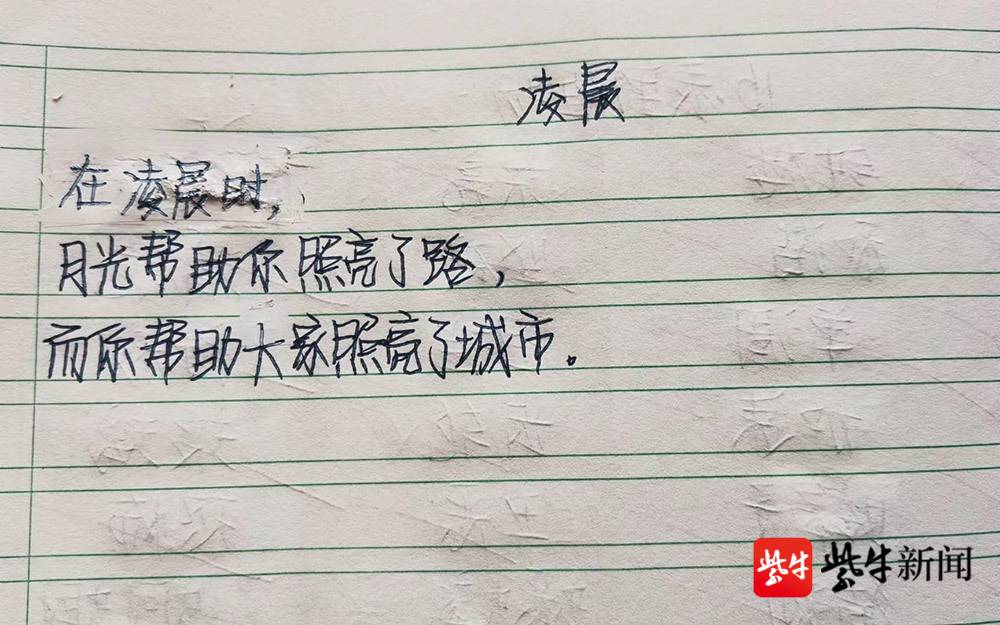 凌晨
在凌晨时,
月光帮助你照亮了路,
而你帮助大家照亮了城市。
紫牛 紫牛新闻